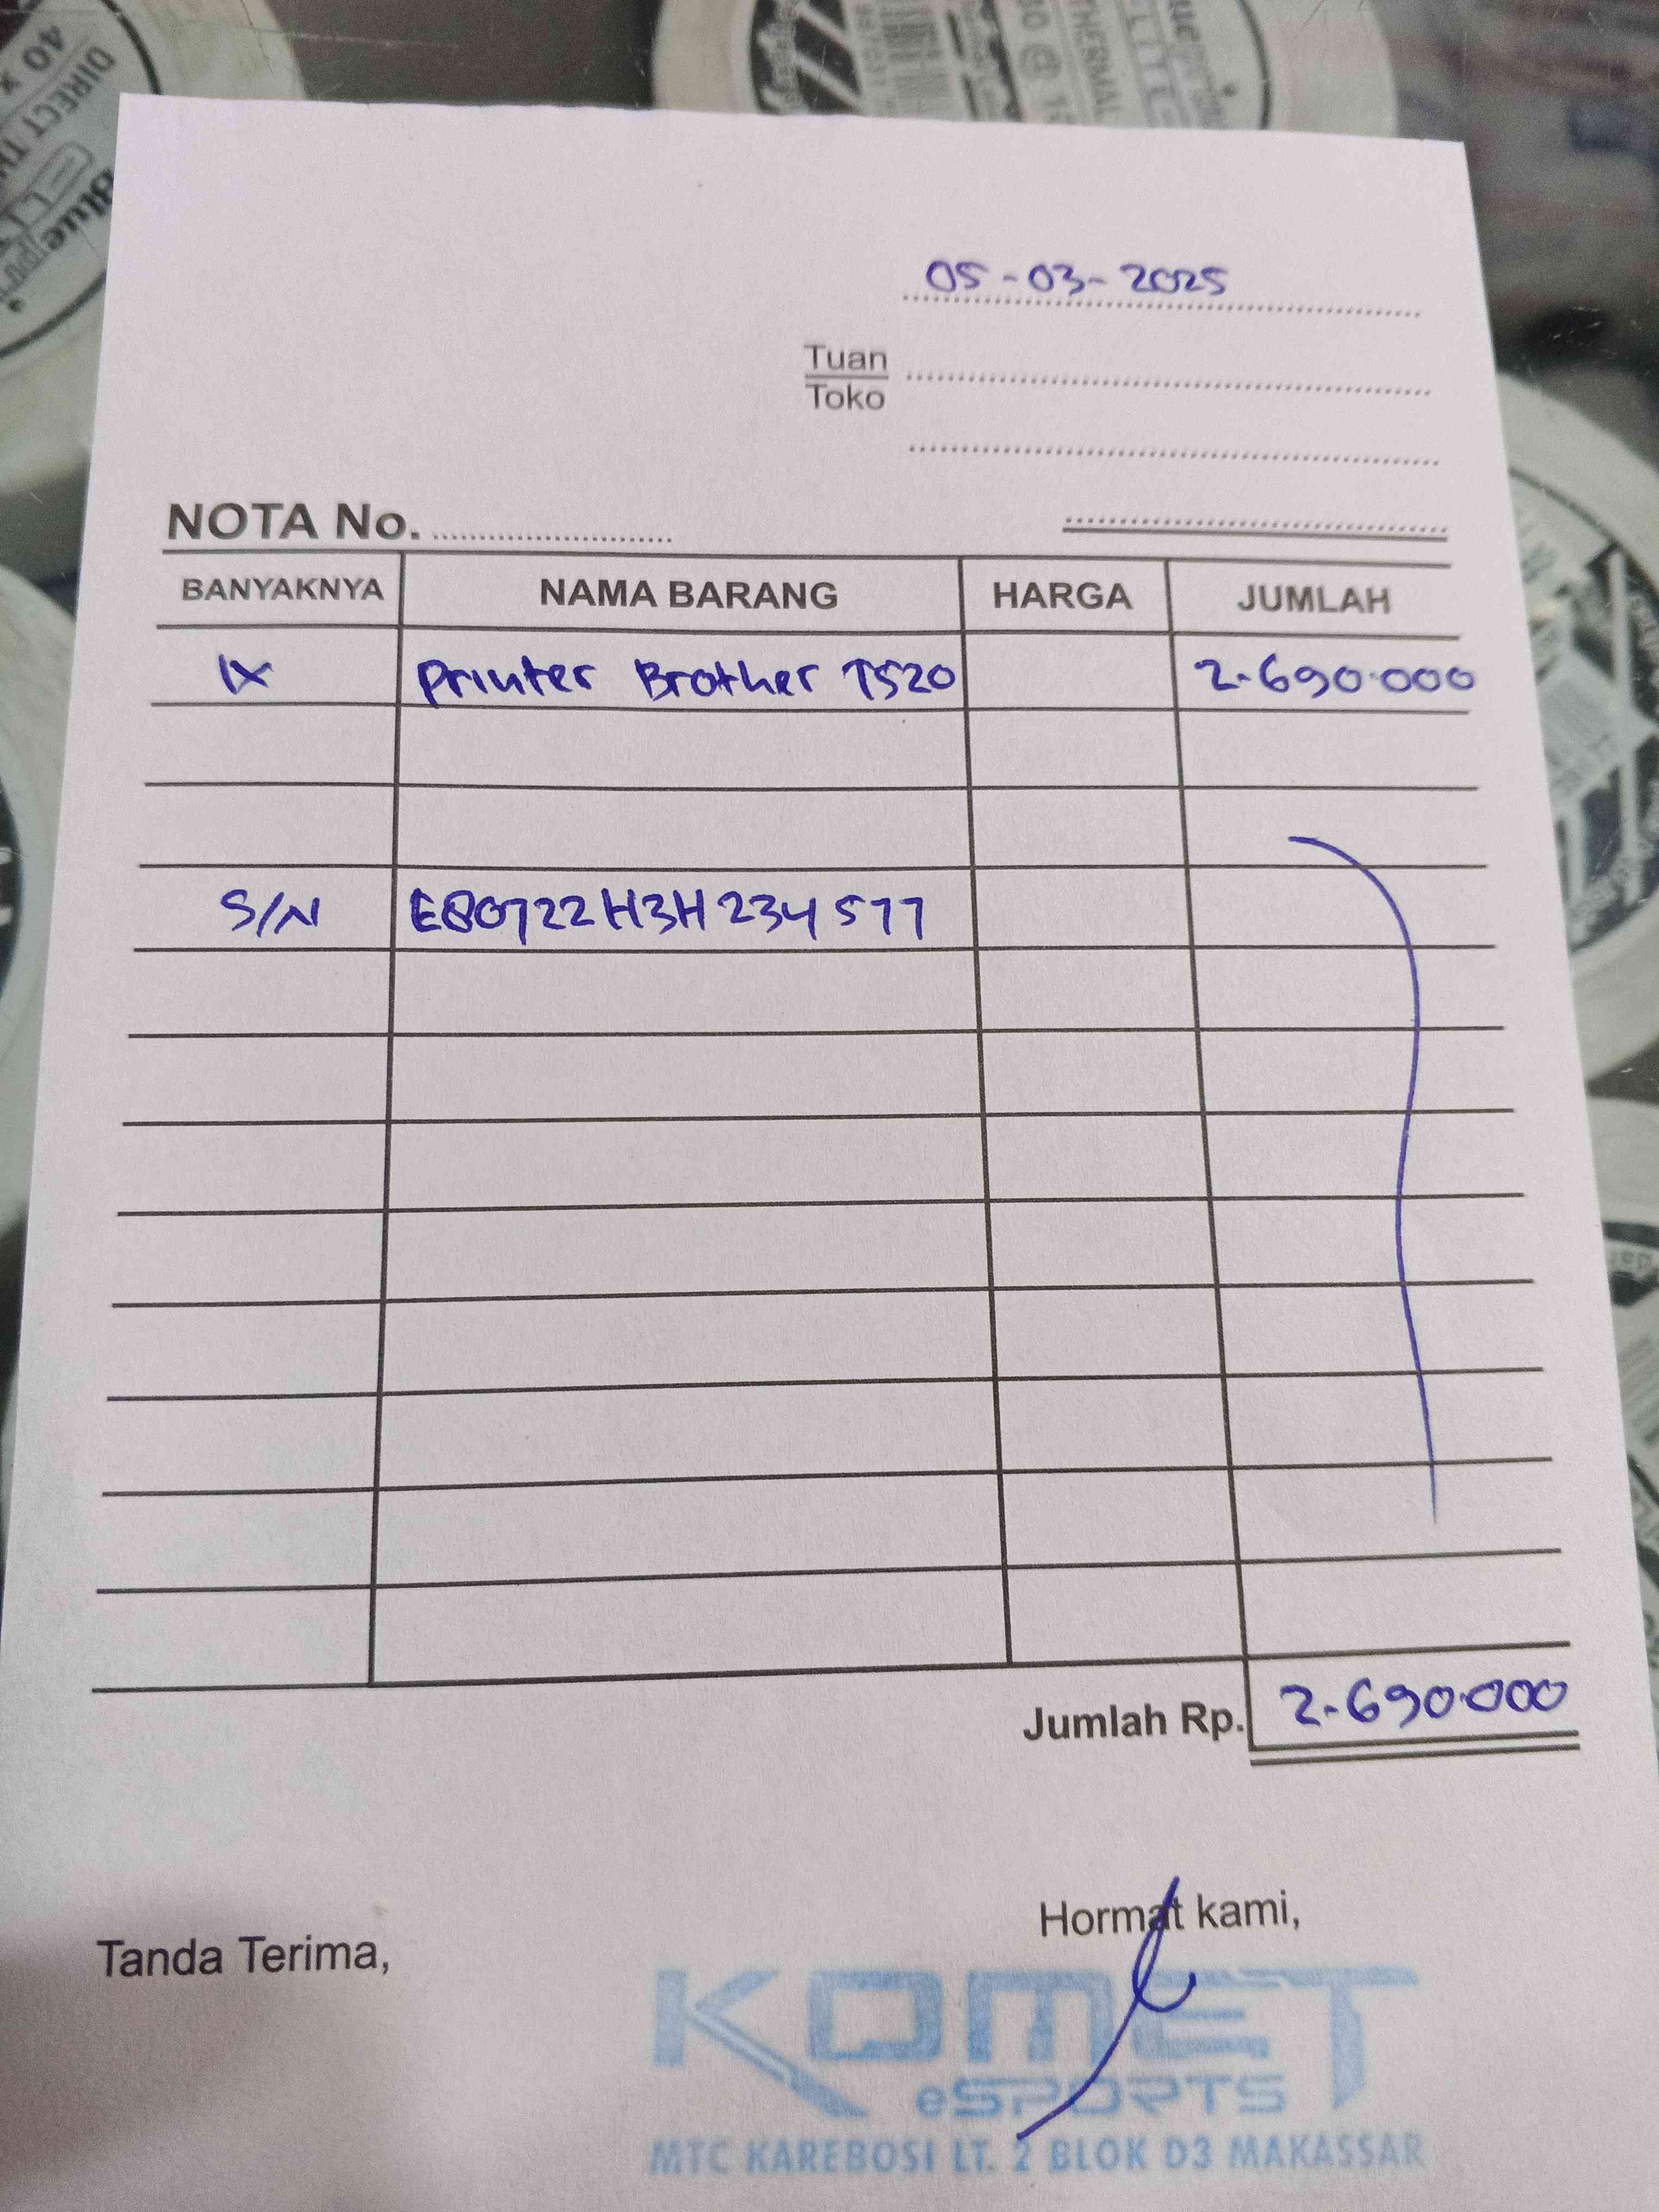 05-03-2025
Tuan
Toko
NOTA No.
BANYAKNYA NAMA BARANG HARGA JUMLAH
1X Printer Brother T520 2.690.000
S/N E80722H3H234577
Jumlah Rp. 2.690.000
Tanda Terima,
Hormat kami,
KOMET
eSPORTS
MTC KAREBOSI LT. 2 BLOK D3 MAKASSAR
DIRECT
40 x
Blue
THERMAL
LITE